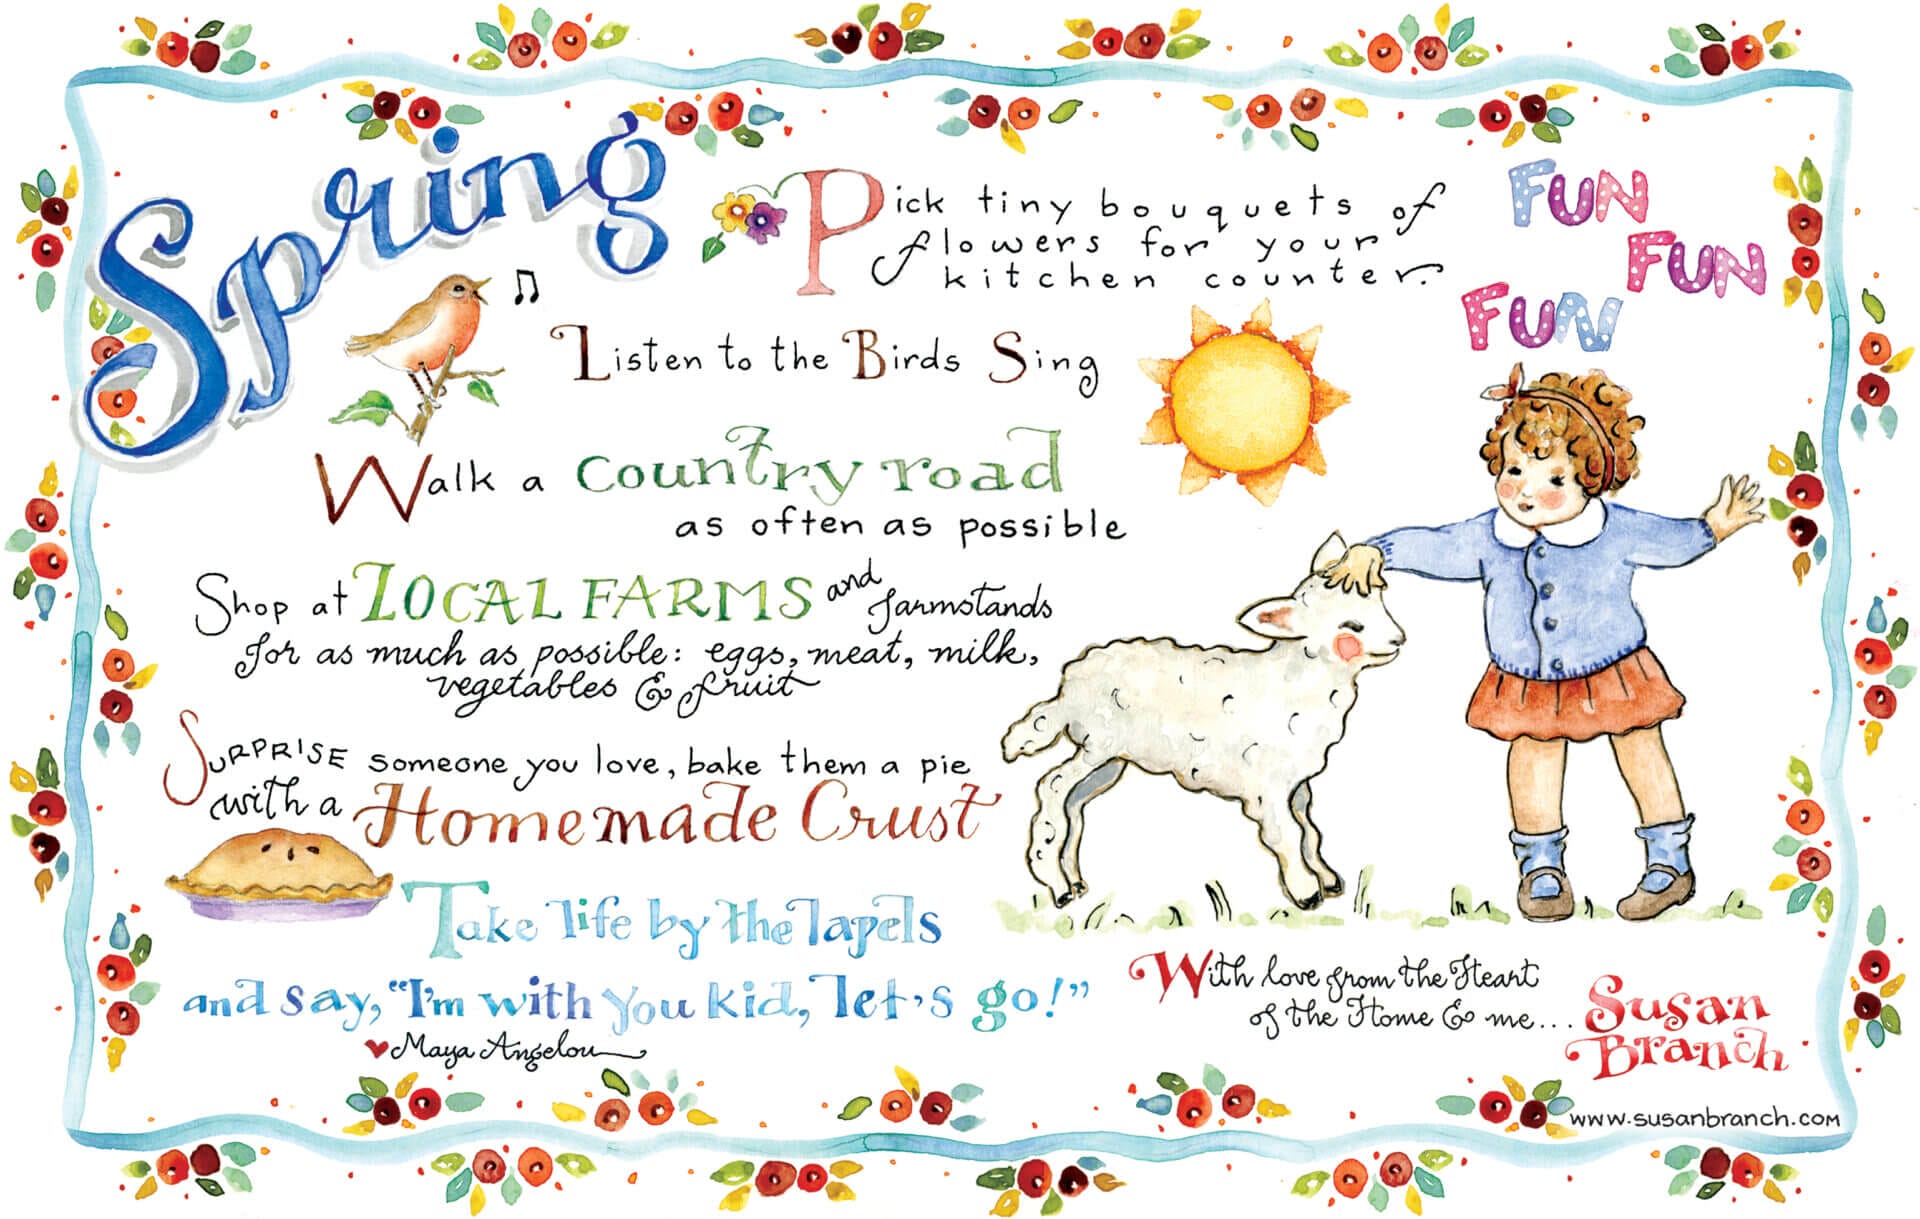 Spring
Pick tiny bouquets of
flowers for your
kitchen counter.
FUN
FUN
FUN
Listen to the Birds Sing
Walk a Country road
as often as possible
Shop at LOCAL FARMS and farmstands
for as much as possible: eggs, meat, milk,
vegetables & fruit
SURPRISE someone you love, bake them a pie
with a Homemade Crust
Take life by the lapels
and say, "I'm with you kid, let's go!"
♥Maya Angelou
With love from the Heart
of the Home & me...
Susan
Branch
www.susanbranch.com